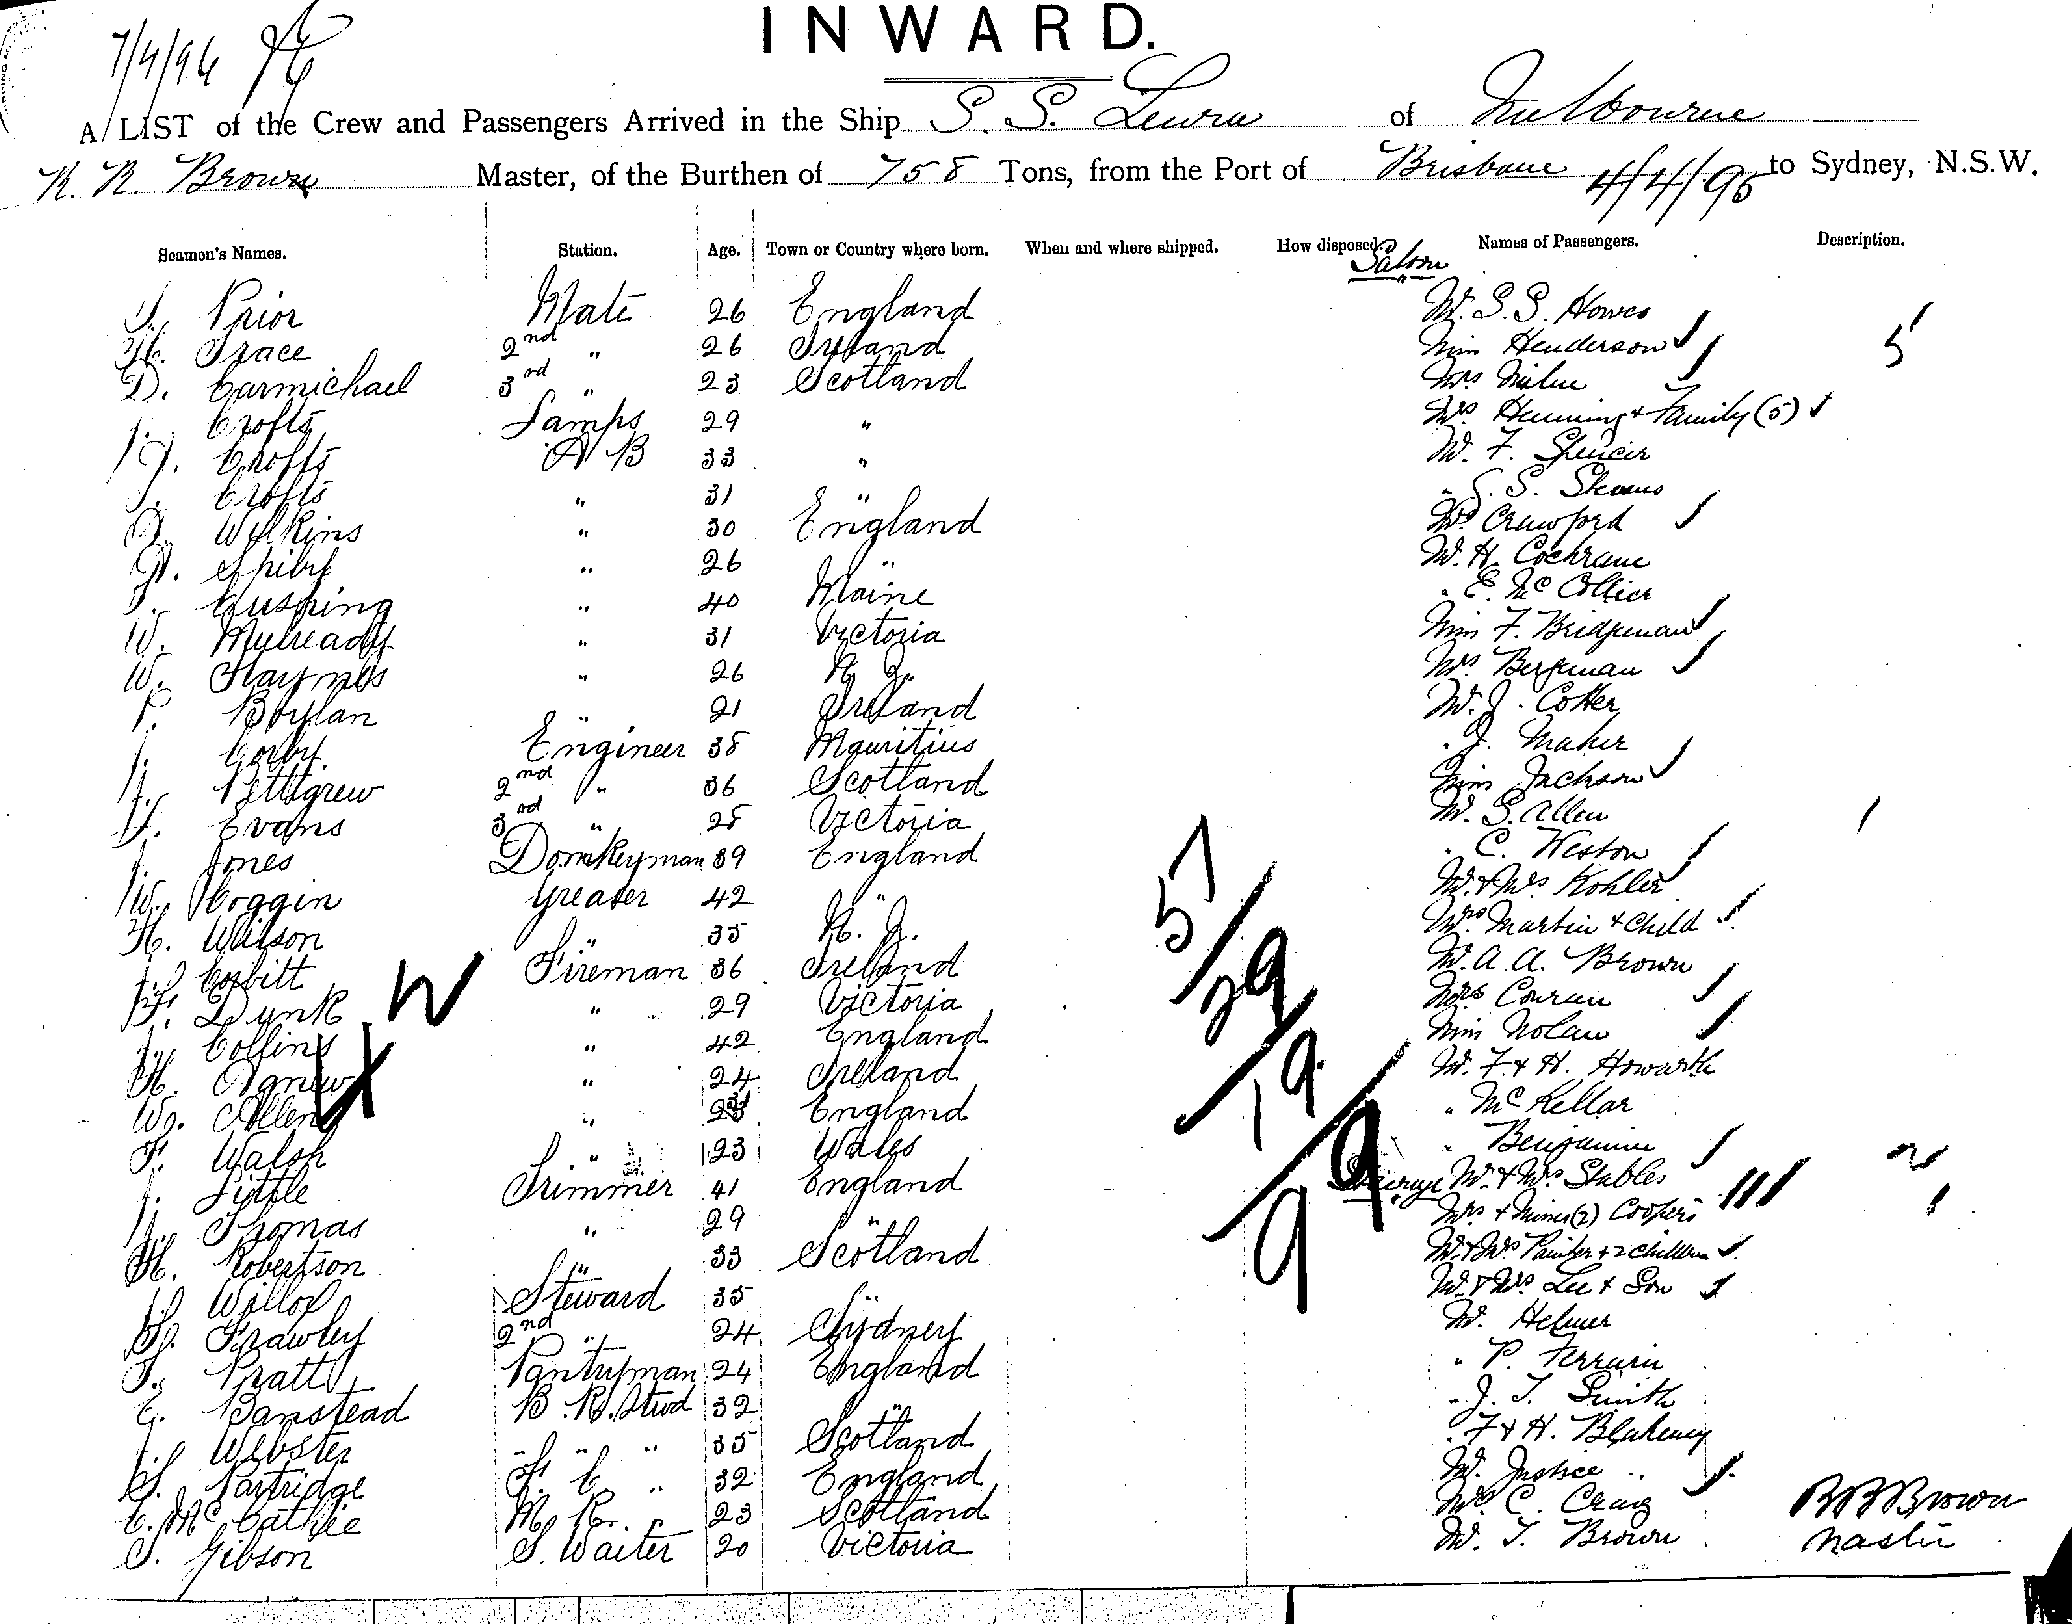 INWARD.
7/4/96
A LIST of the Crew and Passengers Arrived in the Ship S. S. Leura of Melbourne
R. R. Brown Master, of the Burthen of 758 Tons, from the Port of Brisbane 4/4/96 to Sydney, N.S.W.
Seamen's Names. Station. Age. Town or Country where born. When and where shipped. How disposed. Names of Passengers. Description.
Saloon
Prior Mate 26 England Mr. S. S. Howes
H. Trace 2nd " 26 Ireland Miss Henderson 5
D. Carmichael 3rd " 23 Scotland Mrs Milne
J. Crofts Lamps 29 " Mrs Henning & Family (5)
J. Crofts A B 33 " Mr. F. Spencer
J. Crofts " 31 " " S. S. Stevens
Wilkins " 30 England Mrs Crawford
Spiby " 26 " Mr. H. Cochrane
Cushing " 40 Maine " E. Mc Collier
W. Mulready " 31 Victoria Miss F. Bridgeman
W. Haymes " 26 N. Z. Mrs Bergman
P. Boylan " 21 Ireland Mr. J. Cotter
J. Corby Engineer 38 Mauritius " J. Maher
J. Pettigrew 2nd " 36 Scotland Miss Jackson
Evans 3rd " 28 Victoria Mr. S. Allen
J. Jones Donkeyman 39 England " C. Weston
W. Coggin Greaser 42 " Mr. & Mrs Kohler
57
H. Wilson " 35 N. Z. Mrs. Martin & Child
Corbitt Fireman 36 Ireland Mr. A. A. Brown
W
29
Dunk " 29 Victoria Mrs Conran
J. Collins " 42 England Miss Nolan
H. Agnew " 24 Ireland Mr. F & H. Howarth
X
19
W. Allen " England " Mc Kellar
Walsh " 23 Wales " Benjamin
9
J. Little Trimmer 41 England Steerage Mr. & Mrs Stables
J. Thomas " 29 " Mrs & Misses (2) Coopers
9
H. Robertson " 33 Scotland Mr. & Mrs Painter & 2 children
Willox Steward 35 " Mr. & Mrs. Lee & Son
Frawley 2nd " 24 Sydney Mr. Helmer
Pratt Pantryman 24 England " P. Ferrari
E. Banstead B. R. Stwd 32 " " J. T. Smith
J. Webster " " " 35 Scotland " F & H. Blakeney
S. Partridge F. C. " 32 England Mr. Justice
C. Mc Cathie M. R. " 23 Scotland Mrs C. Craig R R Brown
Gibson S. Waiter 20 Victoria Mr. T. Brown Master